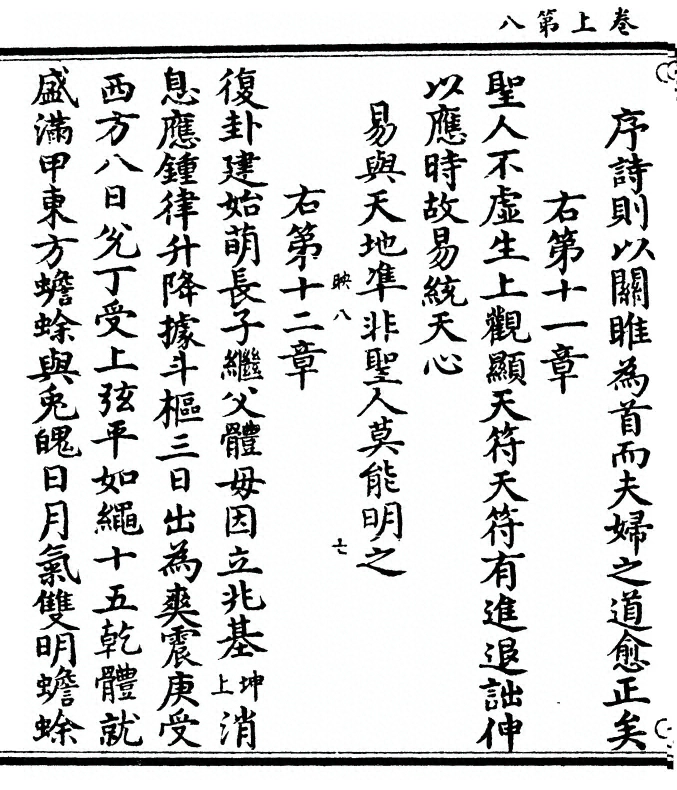 卷上第八
序詩則以關雎為首而夫婦之道愈正矣
右第十一章
聖人不虛生上觀顯天符天符有進退詘伸
以應時故易統天心
易與天地準非聖人莫能明之
映八
七
右第十二章
復卦建始萌長子繼父體毋因立兆基坤上消
息應鍾律升降據斗樞三日出為爽震庚受
西方八日兊丁受上弦平如繩十五乾體就
盛滿甲東方蟾蜍與兎魄日月氣雙明蟾蜍